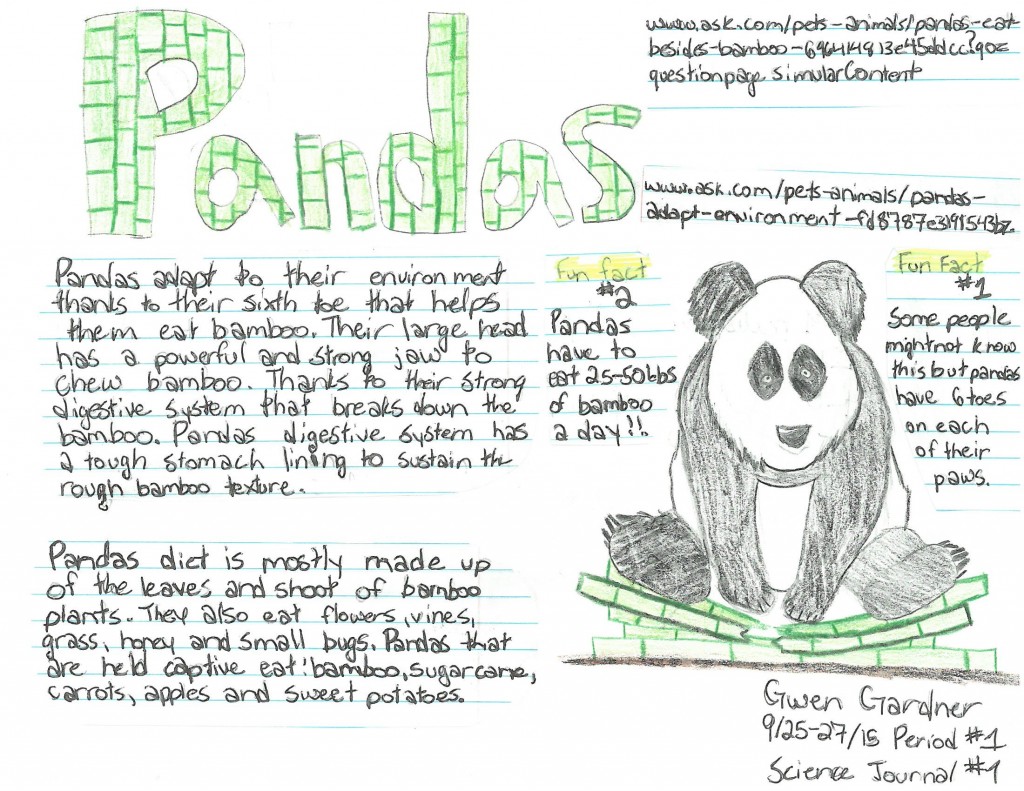 Pandas
www.ask.com/pets-animals/pandas-eat
besides-bamboo-6964144813e45ddcc?qo=
questionpage simularContent
www.ask.com/pets-animals/pandas-
adapt-environment-fd8787e3191543bz
Pandas adapt to their environment
thanks to their sixth toe that helps
them eat bamboo. Their large head
has a powerful and strong jaw to
chew bamboo. Thanks to their strong
digestive system that breaks down the
bamboo. Pandas digestive system has
a tough stomach lining to sustain the
rough bamboo texture.
Pandas diet is mostly made up
of the leaves and shoot of bamboo
plants. They also eat flowers, vines,
grass, honey and small bugs. Pandas that
are held captive eat: bamboo, sugarcane,
carrots, apples and sweet potatoes.
Fun fact
#2
Pandas
have to
eat 25-50lbs
of bamboo
a day!!
Fun Fact
#1
Some people
might not know
this but pandas
have 6 toes
on each
of their
paws.
Gwen Gardner
9/25-27/15 Period #1
Science Journal #1